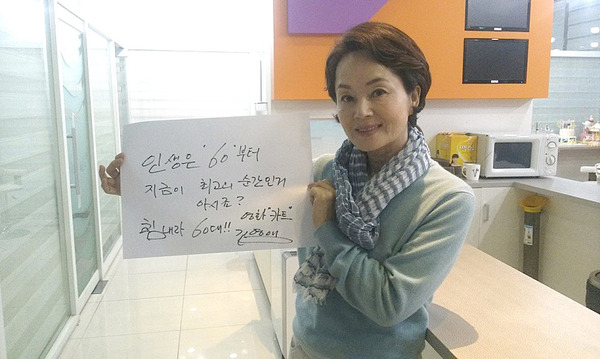 인생은 '60'부터
지금이 최고의 순간인거
아시죠? 영화 "카트"
힘내라 60대!! 김영애